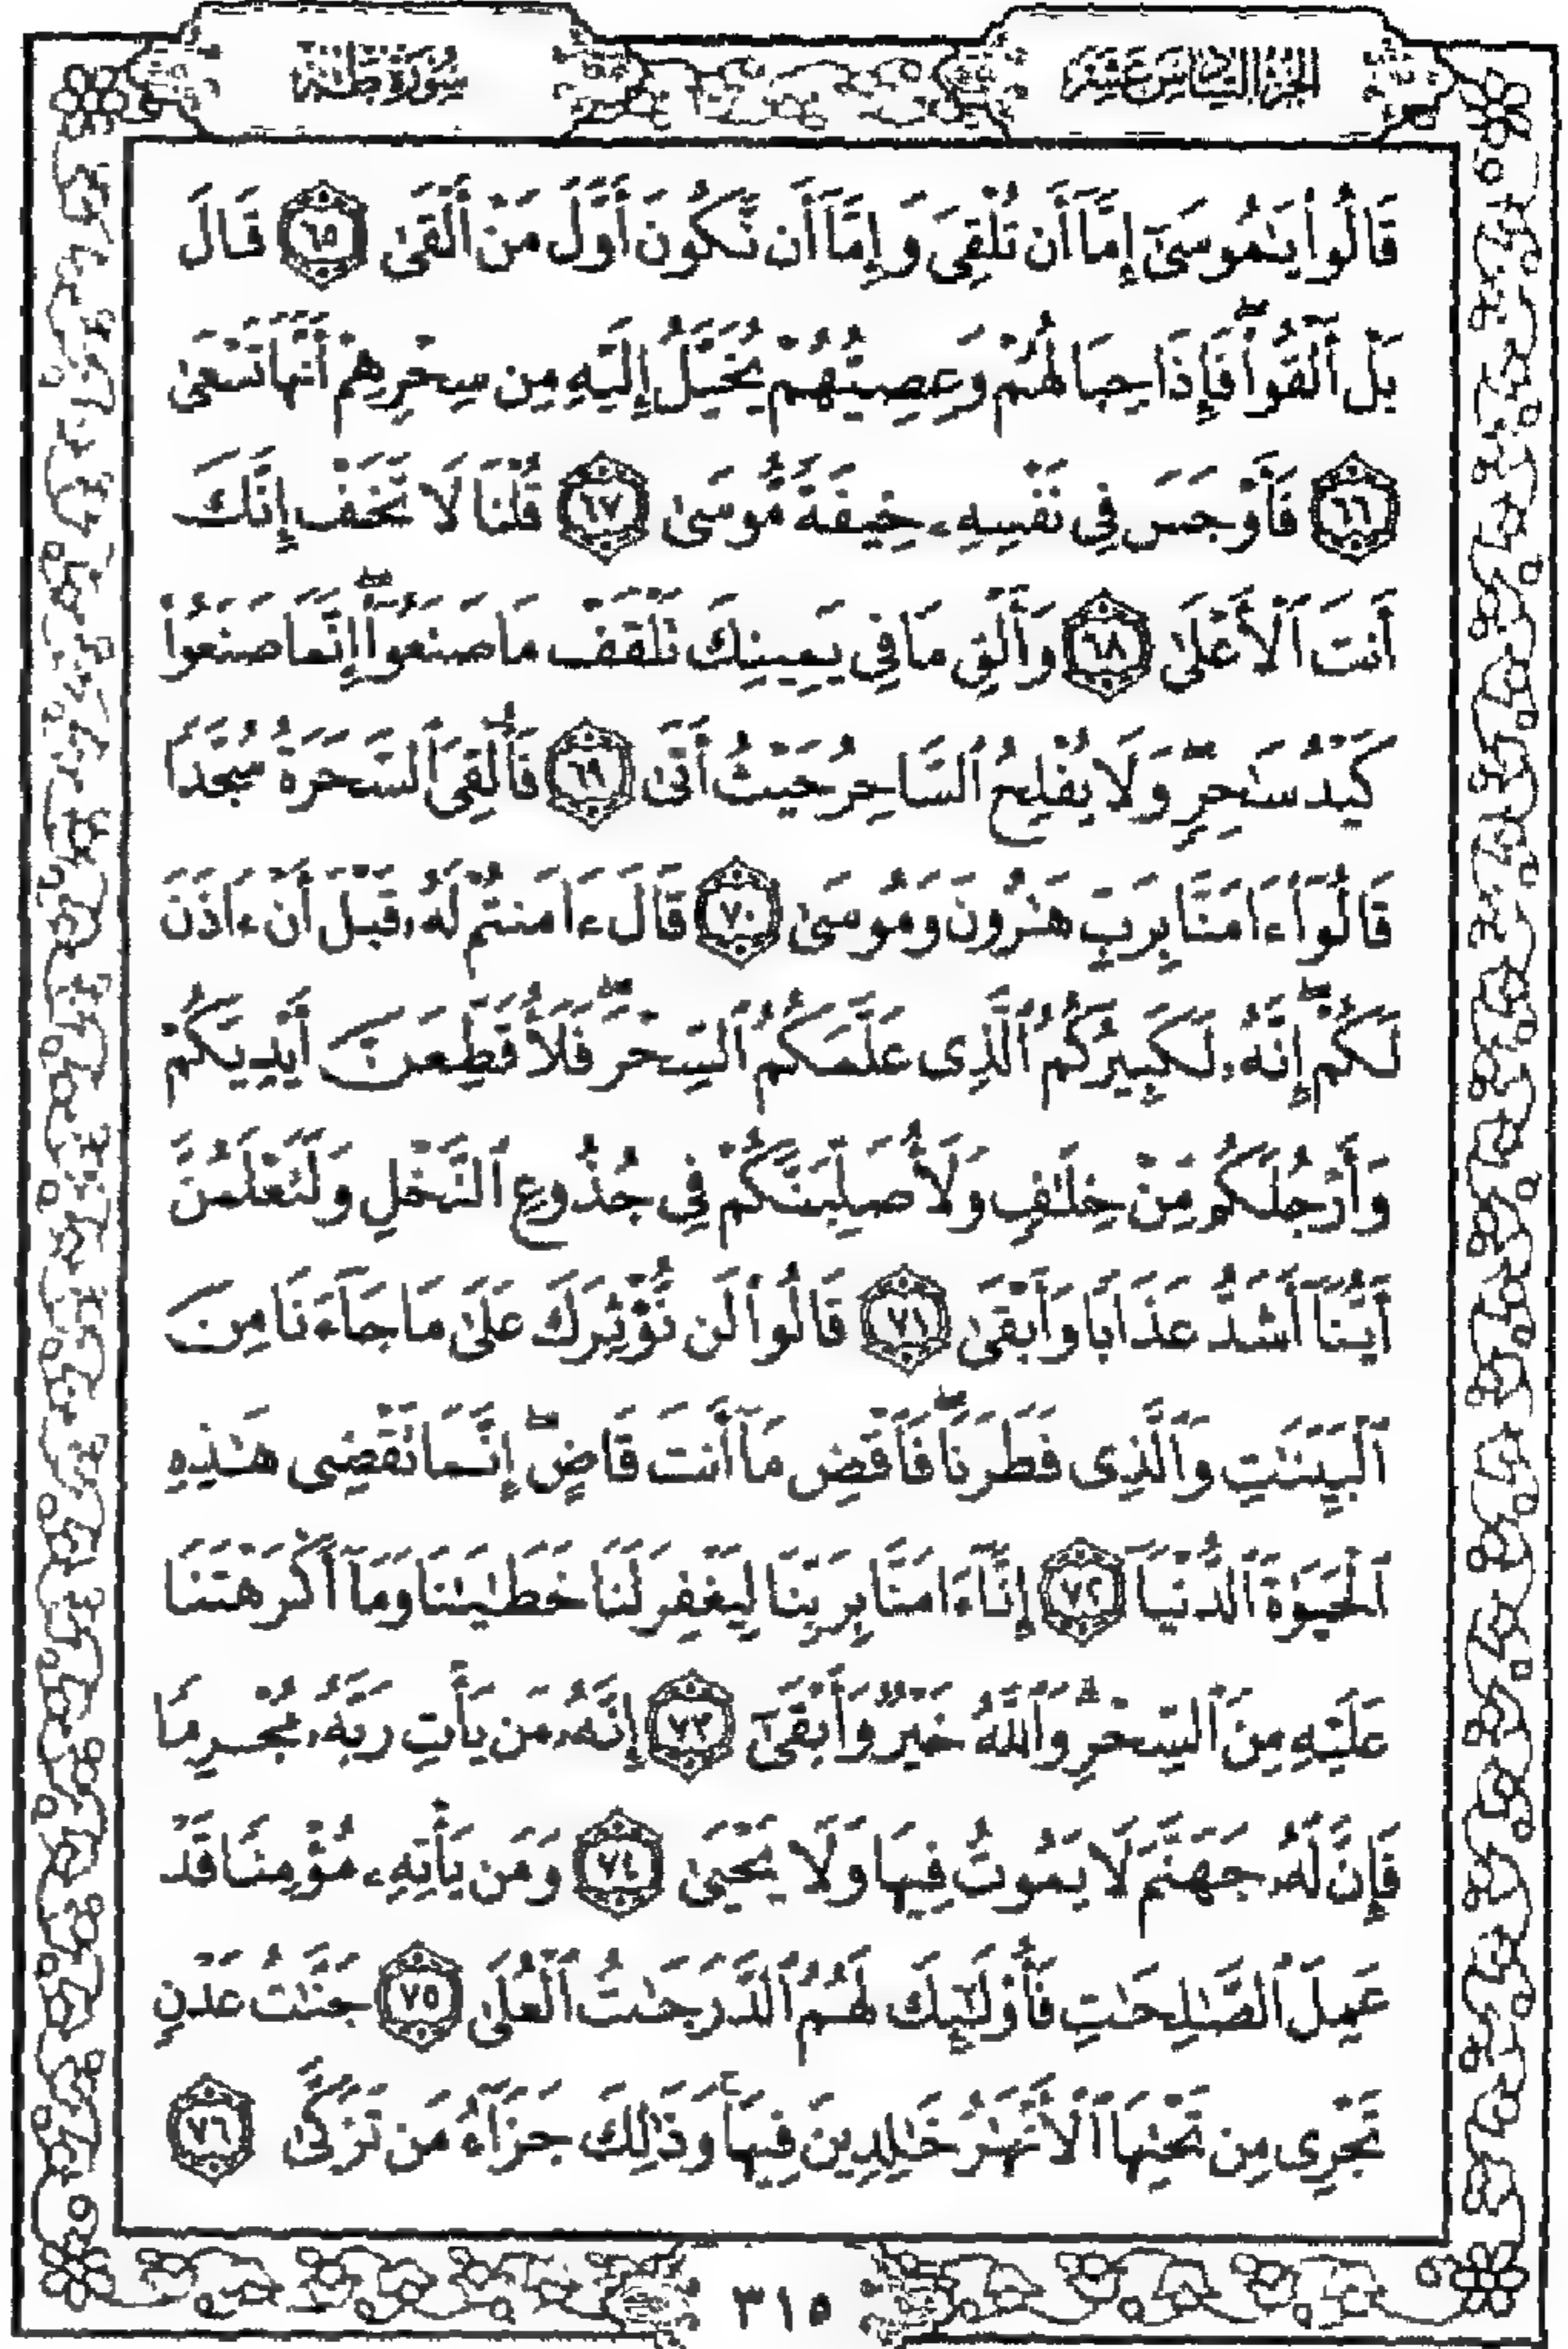 الجزء السادس عشر
سورة طه
قَالُوا۟ يَـٰمُوسَىٰٓ إِمَّآ أَن تُلْقِىَ وَإِمَّآ أَن نَّكُونَ أَوَّلَ مَنْ أَلْقَىٰ ٦٥ قَالَ
بَلْ أَلْقُوا۟ ۖ فَإِذَا حِبَالُهُمْ وَعِصِيُّهُمْ يُخَيَّلُ إِلَيْهِ مِن سِحْرِهِمْ أَنَّهَا تَسْعَىٰ
٦٦ فَأَوْجَسَ فِى نَفْسِهِۦ خِيفَةً مُّوسَىٰ ٦٧ قُلْنَا لَا تَخَفْ إِنَّكَ
أَنتَ ٱلْأَعْلَىٰ ٦٨ وَأَلْقِ مَا فِى يَمِينِكَ تَلْقَفْ مَا صَنَعُوٓا۟ ۖ إِنَّمَا صَنَعُوا۟
كَيْدُ سَـٰحِرٍ ۖ وَلَا يُفْلِحُ ٱلسَّاحِرُ حَيْثُ أَتَىٰ ٦٩ فَأُلْقِىَ ٱلسَّحَرَةُ سُجَّدًا
قَالُوٓا۟ ءَامَنَّا بِرَبِّ هَـٰرُونَ وَمُوسَىٰ ٧٠ قَالَ ءَامَنتُمْ لَهُۥ قَبْلَ أَنْ ءَاذَنَ
لَكُمْ ۖ إِنَّهُۥ لَكَبِيرُكُمُ ٱلَّذِى عَلَّمَكُمُ ٱلسِّحْرَ ۖ فَلَأُقَطِّعَنَّ أَيْدِيَكُمْ
وَأَرْجُلَكُم مِّنْ خِلَـٰفٍ وَلَأُصَلِّبَنَّكُمْ فِى جُذُوعِ ٱلنَّخْلِ وَلَتَعْلَمُنَّ
أَيُّنَآ أَشَدُّ عَذَابًا وَأَبْقَىٰ ٧١ قَالُوا۟ لَن نُّؤْثِرَكَ عَلَىٰ مَا جَآءَنَا مِنَ
ٱلْبَيِّنَـٰتِ وَٱلَّذِى فَطَرَنَا ۖ فَٱقْضِ مَآ أَنتَ قَاضٍ ۖ إِنَّمَا تَقْضِى هَـٰذِهِ
ٱلْحَيَوٰةَ ٱلدُّنْيَآ ٧٢ إِنَّآ ءَامَنَّا بِرَبِّنَا لِيَغْفِرَ لَنَا خَطَـٰيَـٰنَا وَمَآ أَكْرَهْتَنَا
عَلَيْهِ مِنَ ٱلسِّحْرِ ۗ وَٱللَّهُ خَيْرٌ وَأَبْقَىٰٓ ٧٣ إِنَّهُۥ مَن يَأْتِ رَبَّهُۥ مُجْرِمًا
فَإِنَّ لَهُۥ جَهَنَّمَ لَا يَمُوتُ فِيهَا وَلَا يَحْيَىٰ ٧٤ وَمَن يَأْتِهِۦ مُؤْمِنًا قَدْ
عَمِلَ ٱلصَّـٰلِحَـٰتِ فَأُو۟لَـٰٓئِكَ لَهُمُ ٱلدَّرَجَـٰتُ ٱلْعُلَىٰ ٧٥ جَنَّـٰتُ عَدْنٍ
تَجْرِى مِن تَحْتِهَا ٱلْأَنْهَـٰرُ خَـٰلِدِينَ فِيهَا ۚ وَذَٰلِكَ جَزَآءُ مَن تَزَكَّىٰ ٧٦
٣١٥